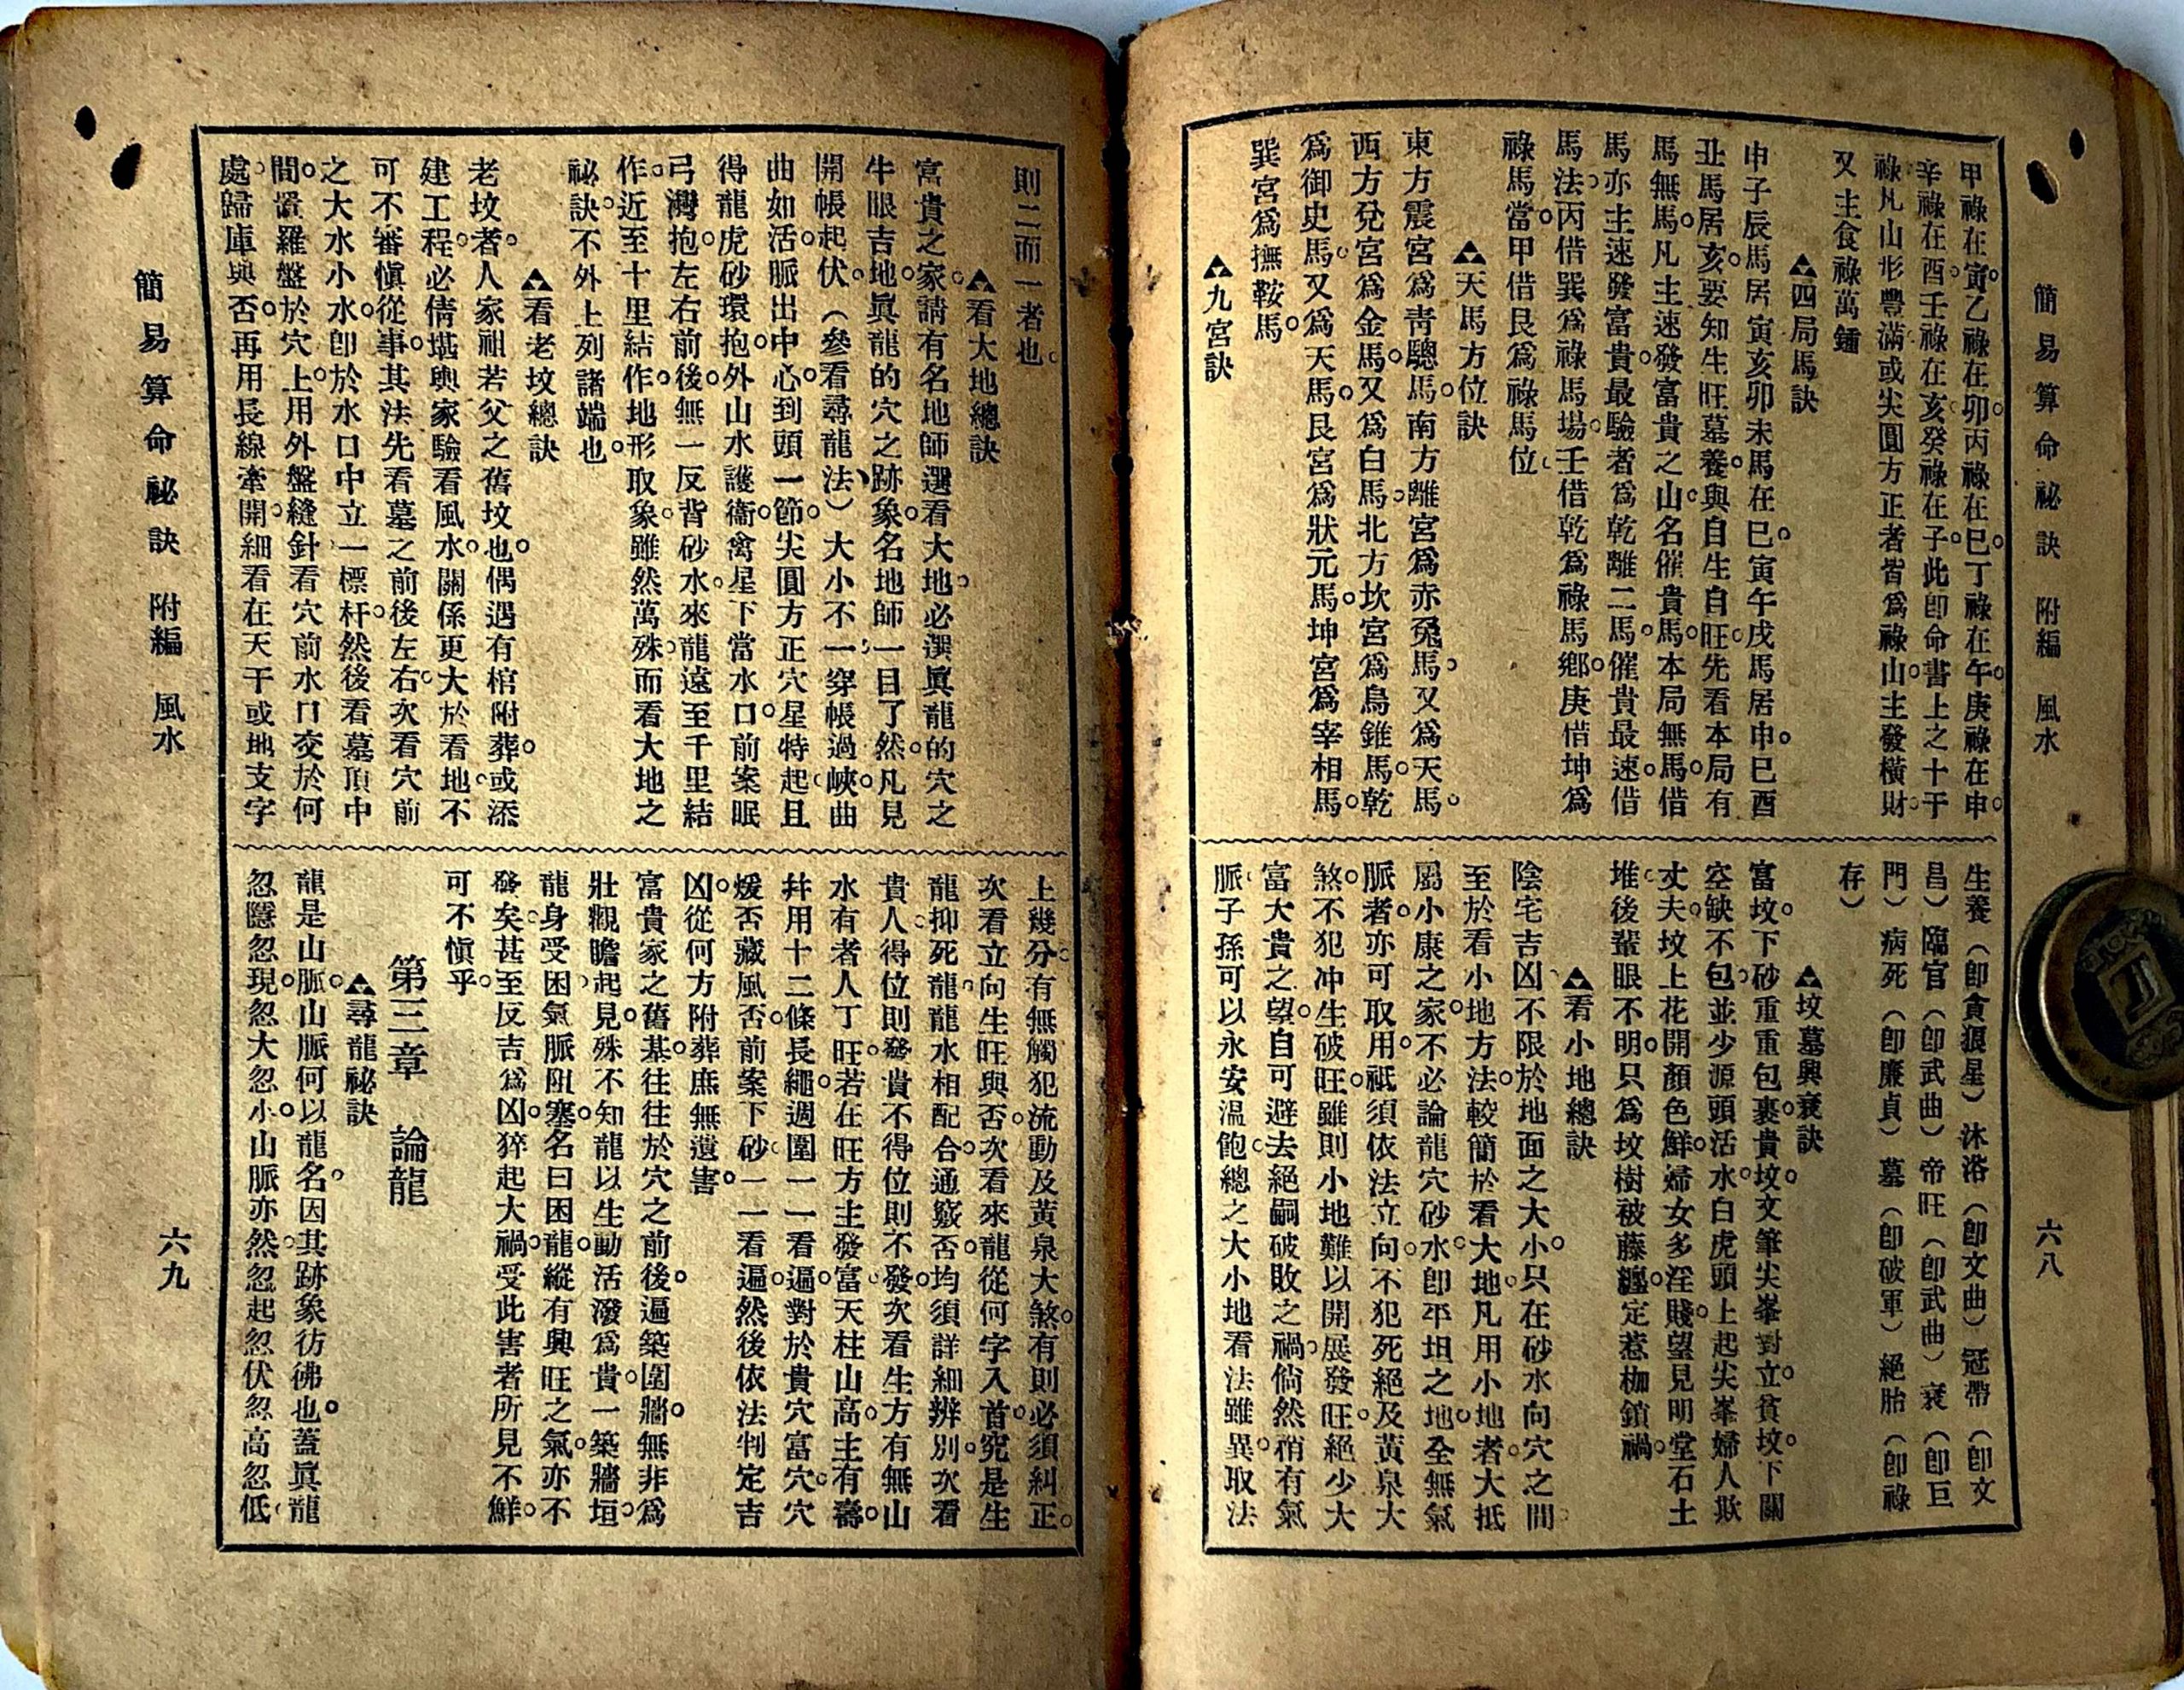 簡易算命祕訣 附編 風水 六八
甲祿在寅。乙祿在卯。丙祿在巳。丁祿在午。庚祿在申。
辛祿在酉。壬祿在亥。癸祿在子。此卽命書上之十干
祿。凡山形豐滿。或尖圓方正者。皆爲祿山。主發橫財。
又主食祿萬鍾
▲四局馬訣
申子辰馬居寅。亥卯未馬在巳。寅午戌馬居申。巳酉
丑馬居亥。要知生旺墓養。與自生自旺。先看本局有
馬無馬。凡主速發富貴之山。名催貴馬。本局無馬。借
馬亦主速發富貴。最驗者爲乾離二馬。催貴最速。借
馬法。丙借巽爲祿馬場。壬借乾爲祿馬鄉。庚借坤爲
祿馬當。甲借艮爲祿馬位。
▲天馬方位訣
東方震宮爲靑驄馬。南方離宮爲赤兔馬。又爲天馬。
西方兌宮爲金馬。又爲白馬。北方坎宮爲烏錐馬。乾
爲御史馬。又爲天馬。艮宮爲狀元馬。坤宮爲宰相馬。
巽宮爲撫鞍馬。
▲九宮訣
生養（卽貪狼星）沐浴（卽文曲）冠帶（卽文
昌）臨官（卽武曲）帝旺（卽武曲）衰（卽巨
門）病死（卽廉貞）墓（卽破軍）絕胎（卽祿
存）
▲坟墓興衰訣
富坟下砂重重包裹。貴坟文筆尖峯對立。貧坟下關
空缺不包。並少源頭活水。白虎頭上起尖峯。婦人欺
丈夫。坟上花開顏色鮮。婦女多淫賤。望見明堂石土
堆。後輩眼不明。只爲坟樹被藤纏。定惹枷鎖禍。
▲看小地總訣
陰宅吉凶。不限於地面之大小。只在砂水向穴之間。
至於看小地方法。較簡於看大地。凡用小地者。大抵
屬小康之家。不必論龍穴砂水。卽平坦之地。全無氣
脈者。亦可取用。祇須依法立向。不犯死絕及黃泉大
煞。不犯冲生破旺。雖則小地難以開展發旺。絕少大
富大貴之望。自可避去絕嗣破敗之禍。倘然稍有氣
脈。子孫可以永安温飽。總之大小地看法雖異。取法
則二而一者也。
▲看大地總訣
富貴之家。請有名地師選看大地。必選眞龍的穴之
牛眠吉地。眞龍的穴之跡象。名地師一目了然。凡見
開帳起伏（參看尋龍法）大小不一。穿帳過峽。曲
曲如活。脈出中心。到頭一節。尖圓方正。穴星特起。且
得龍虎砂環抱。外山水護衞。禽星下當水口。前案眠
弓灣抱。左右前後。無一反背砂水。來龍遠至千里結
作。近至十里結作。地形取象。雖然萬殊。而看大地之
祕訣。不外上列諸端也。
▲看老坟總訣
老坟者。人家祖若父之舊坟也。偶遇有棺附葬。或添
建工程。必倩堪輿家驗看風水。關係更大於看地。不
可不審愼從事。其法先看墓之前後左右。次看穴前
之大水小水。卽於水口中立一標杆。然後看墓頂中
間。置羅盤於穴上。用外盤縫針看穴前水口交於何
處。歸庫與否。再用長線牽開。細看在天干或地支字
上幾分。有無觸犯流動及黃泉大煞。有則必須糾正。
次看立向生旺與否。次看來龍從何字入首。究是生
龍抑死龍。龍水相配合通竅否。均須詳細辨別。次看
貴人得位則發貴。不得位則不發。次看生方有無山
水。有者人丁旺。若在旺方主發富。天柱山高。主有壽。
幷用十二條長繩。週圍一一看遍。對於貴穴富穴。穴
煖否。藏風否。前案下砂。一一看遍。然後依法判定吉
凶。從何方附葬。庶無遺害。
富貴家之舊墓。往往於穴之前後。遍築圍牆。無非爲
壯觀瞻起見。殊不知龍以生動活潑爲貴。一築牆垣。
龍身受困。氣脈阻塞。名曰困龍。縱有興旺之氣。亦不
發矣。甚至反吉爲凶。猝起大禍。受此害者。所見不鮮。
可不愼乎。
第三章 論龍
▲尋龍祕訣
龍是山脈。山脈何以龍名。因其跡象彷彿也。蓋眞龍
忽隱忽現。忽大忽小。山脈亦然。忽起忽伏。忽高忽低。
簡易算命祕訣 附編 風水 六九